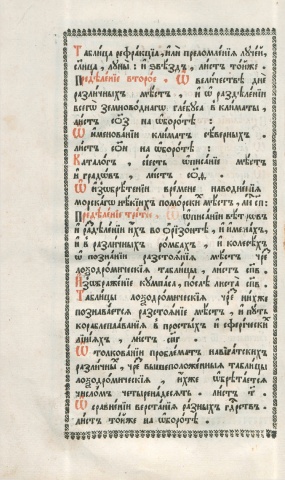 Таблица рефракцїи, или преломленїя лучей,
слнца, луны: и ѕвѣздъ, листъ тойже.
Предѣленїе второе. Ѡ величествѣ дне
различныхъ мѣстъ, и ѡ раздѣленїи
всегѡ земноводнагѡ глобуса в климаты,
листъ на ѡборотѣ:
Ѡ именованїи климатъ сѣверныхъ.
листъ на ѡборотѣ:
Каталогъ, сїесть ѡписанїе мѣстъ
и градѡвъ, листъ
Ѡ изѡбрѣтенїи времене наводненїя
морскагѡ нѣкїихъ поморскихъ мѣстъ,
Предѣленїе третїе. Ѡ ѡписанїи вѣтрѡвъ
и раздѣленїи ихъ во ѡрїзонтѣ, и именахъ,
и ѡ различныхъ ромбахъ, и колерѣхъ
ѡ познанїи разстоянїя мѣстъ чрез
лоѯодромическїя таблицы, листъ
Изѡбраженїе кумпаса, послѣ листа
Таблицы лоѯодромическїя чрез нихже
познавается разстоянїе мѣстъ, и путь
кораблеплаванїя в простыхъ и сферически
листъ
Ѡ толкованїи проблематъ навїгатскихъ
различны, чрез вышеположенныя таблицы
лоѯодромическїя, ихже ѡбрѣтается
числомъ четыренадесять. листъ т.
Ѡ сравненїи верстанїя разныхъ гдрствъ.
листъ тойже на ѡборотѣ.